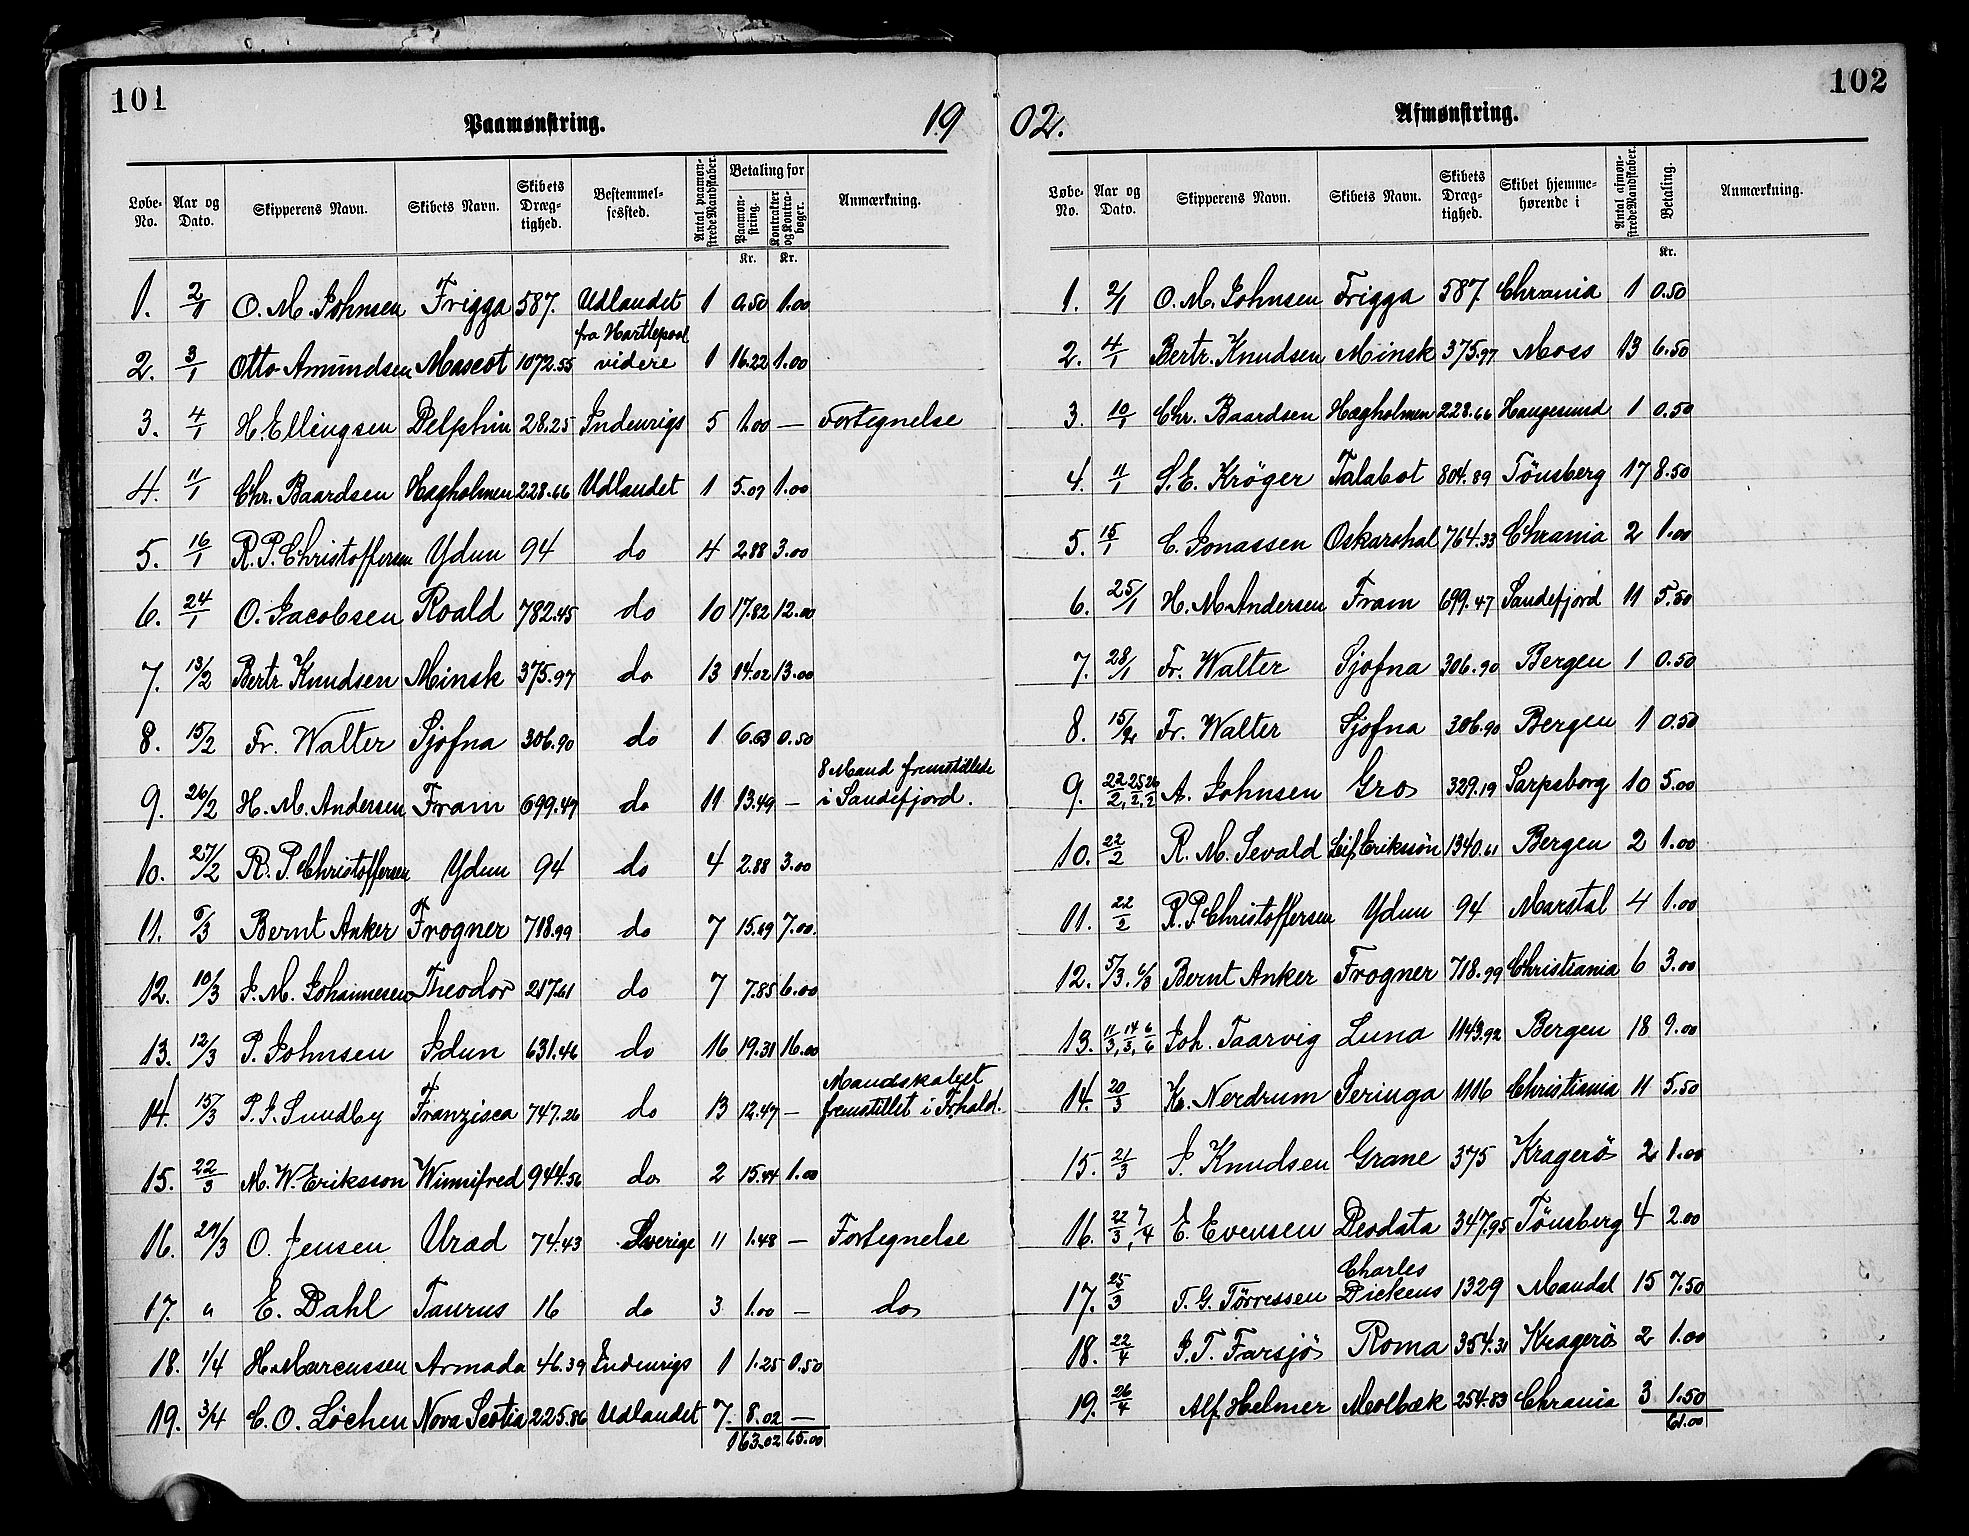 101
Paamønstring. 19
Løbe-No. Aar og Dato. Skipperens Navn. Skibets Navn. Skibets Dræg-tighed. Bestemmel-sessted. Antal paamøn-strede Mandskaber. Betaling for Paamøn-string. Kontrakter og Kontra-bøger. Anmærkning.
Kr. Kr.
1. 2/1 O. M. Johnsen Frigga 587. Udlandet 1 0.50 1.00
2. 3/1 Otto Amundsen Mascot 1072.55 fra Hartlepool videre 1 16.22 1.00
3. 4/1 H. Ellingsen Delphin 28.25 Indenrigs 5 1.00 — Fortegnelse
4. 11/1 Chr. Baardsen Hægholmen 228.66 Udlandet 1 5.07 1.00
5. 16/1 R. P. Christoffersen Ydun 94 do 4 2.88 3.00
6. 24/1 O. Jacobsen Roald 782.45 do 10 17.82 12.00
7. 13/2 Bertr Knudsen Minsk 375.97 do 13 14.02 13.00
8. 15/2 Fr. Walter Sjofna 306.90 do 1 6.63 0.50
9. 26/2 H. M. Andersen Fram 699.47 do 11 13.49 — 8 Mand fremstillede i Sandefjord.
10. 27/2 R. P. Christoffersen Ydun 94 do 4 2.88 3.00
11. 6/3 Bernt Anker Frogner 718.99 do 7 15.69 7.00.
12. 10/3 J. M. Johannesen Theodor 217.61 do 7 7.85 6.00
13. 12/3 P. Johnsen Idun 631.46 do 16 19.31 16.00
14. 15/3 P. J. Sundby Franzisca 747.26 do 13 12.47 — Mandskabet fremstillet i Frhald.
15. 22/3 M. W. Eriksson Winnifred 944.56 do 2 15.44 1.00
16. 24/3 O. Jensen Urad 74.43 Sverige 11 1.48 — Fortegnelse
17. " E. Dahl Taurus 16 do 3 1.00 — do
18. 1/4 H. Marcussen Armada 46.39 Indenrigs 1 1.25 0.50
19. 3/4 C. O. Löchen Nova Scotia 225.86 Udlandet 7. 8.02 —
163.02 65.00
102
02. Afmønstring.
Løbe-No. Aar og Dato. Skipperens Navn. Skibets Navn. Skibets Dræg-tighed. Skibet hjemme-hørende i Antal afmøn-strede Mandskaber. Betaling. Anmærkning.
Kr.
1. 2/1 O. M. Johnsen Frigga 587 Chrania 1 0.50
2. 4/1 Bertr. Knudsen Minsk 375.97 Moss 13 6.50
3. 10/1 Chr. Baardsen Hægholmen 228.66 Haugesund 1 0.50
4. 11/1 S. E. Kröger Talabot 804.89 Tönsberg 17 8.50
5. 15/1 C. Jonassen Oskarshal 764.33 Chrania 2 1.00
6. 25/1 H. M Andersen Fram 699.47 Sandefjord 11 5.50
7. 28/1 Fr. Walter Sjofna 306.90 Bergen 1 0.50
8. 15/2 Fr. Walter Sjofna 306.90 Bergen 1 0.50
9. 22/2, 25/2, 26/2 A. Johnsen Gro 329.19 Sarpsborg 10 5.00
10. 22/2 R. M. Sevald Leif Eriksön 1340.61 Bergen 2 1.00
11. 22/2 R. P Christoffersen Ydun 94 Marstal 4 1.00
12. 5/3. 6/3 Bernt Anker Frogner 718.99 Christiania 6 3.00
13. 11/3, 14/3, 6/6 Joh. Taarvig Luna 1143.92 Bergen 18 9.00
14. 20/3 K. Nerdrum Seringa 1116 Christiania 11 5.50
15. 21/3 J. Knudsen Grane 375 Kragerö 2 1.00
16. 22/3, 7/4 E. Evensen Deodata 347.95 Tönsberg 4 2.00
17. 25/3 T. G. Törressen Charles Dickens 1329 Mandal 15 7.50
18. 22/4 J. T. Farsjö Roma 354.31 Kragerö 2 1.00
19. 26/4 Alf Helmer Molbæk 254.83 Chrania 3 1.50
61.00